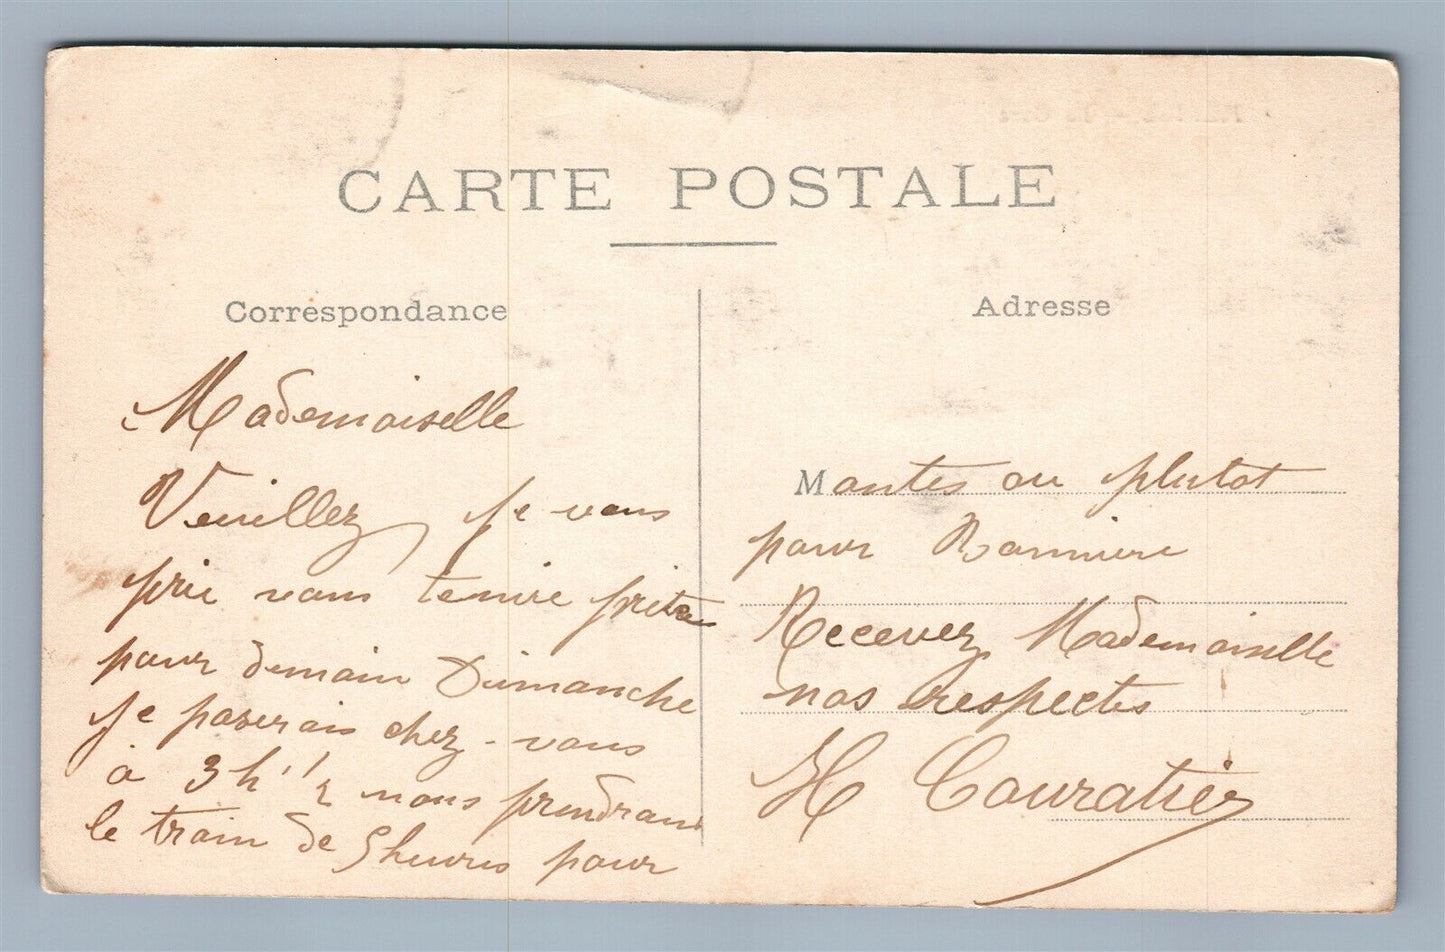 CARTE POSTALE
Correspondance
Mademoiselle
Veuillez, je vous
prie vous tenire prête
pour demain Dimanche
je paserais chez-vous
à 3h 1/2 nous prendrons
le train de 5 heures pour
Adresse
Mantes ou plutot
pour
Recevez Mademoiselle
nos respects
H Couratier